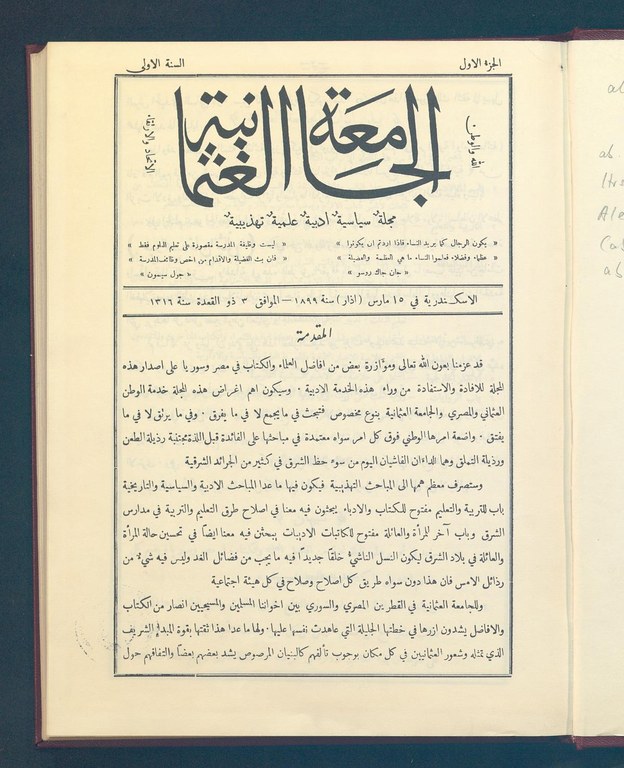 الجزء الاول
السنة الاولى
الله والوطن
الجامعة العثمانية
الاتحاد والارتقاء
مجلة سياسية ادبية علمية تهذيبية
« يكون الرجال كما يريد النساء فاذا اردتم ان يكونوا »
« عظماء وفضلاء فعلموا النساء ما هي العظمة والفضيلة »
« جان جاك روسو »
« ليست وظيفة المدرسة مقصورة على تعليم العلوم فقط »
« فان بث الفضيلة والاقدام من اخص وظائف المدرسة »
« جول سيمون »
الاسكندرية في ١٥ مارس (اذار) سنة ١٨٩٩ — الموافق ٣ ذو القعدة سنة ١٣١٦
المقدمة
قد عزمنا بعون الله تعالى ومؤازرة بعض من افاضل العلماء والكتاب في مصر وسوريا على اصدار هذه
المجلة للافادة والاستفادة من وراء هذه الخدمة الادبية . وسيكون اهم اغراض هذه المجلة خدمة الوطن
العثماني والمصري والجامعة العثمانية بنوع مخصوص فتبحث في ما يجمع لا في ما يفرق . وفي ما يرتق لا في ما
يفتق . واضعة امرها الوطني فوق كل امر سواه معتمدة في مباحثها على الفائدة قبل اللذة مجتنبة رذيلة الطعن
ورذيلة التملق وهما الداءان الفاشيان اليوم من سوء حظ الشرق في كثير من الجرائد الشرقية
وستصرف معظم همها الى المباحث التهذيبية فيكون فيها ما عدا المباحث الادبية والسياسية والتاريخية
باب للتربية والتعليم مفتوح للكتاب والادباء يبحثون فيه معنا في اصلاح طرق التعليم والتربية في مدارس
الشرق وباب آخر للمرأة والعائلة مفتوح للكاتبات الاديبات يبحثن فيه معنا ايضاً في تحسين حالة المرأة
والعائلة في بلاد الشرق ليكون النسل الناشئ خلقاً جديداً فيه ما يجب من فضائل الغد وليس فيه شيء من
رذائل الامس فان هذا دون سواه طريق كل اصلاح وصلاح في كل هيئة اجتماعية
وللجامعة العثمانية في القطرين المصري والسوري بين اخواننا المسلمين والمسيحيين انصار من الكتاب
والافاضل يشدون ازرها في خطتها الجليلة التي عاهدت نفسها عليها . ولها ما عدا هذا ثقتها بقوة المبدإ الشريف
الذي تمثله وشعور العثمانيين في كل مكان بوجوب تألفهم كالبنيان المرصوص يشد بعضهم بعضاً والتفافهم حول